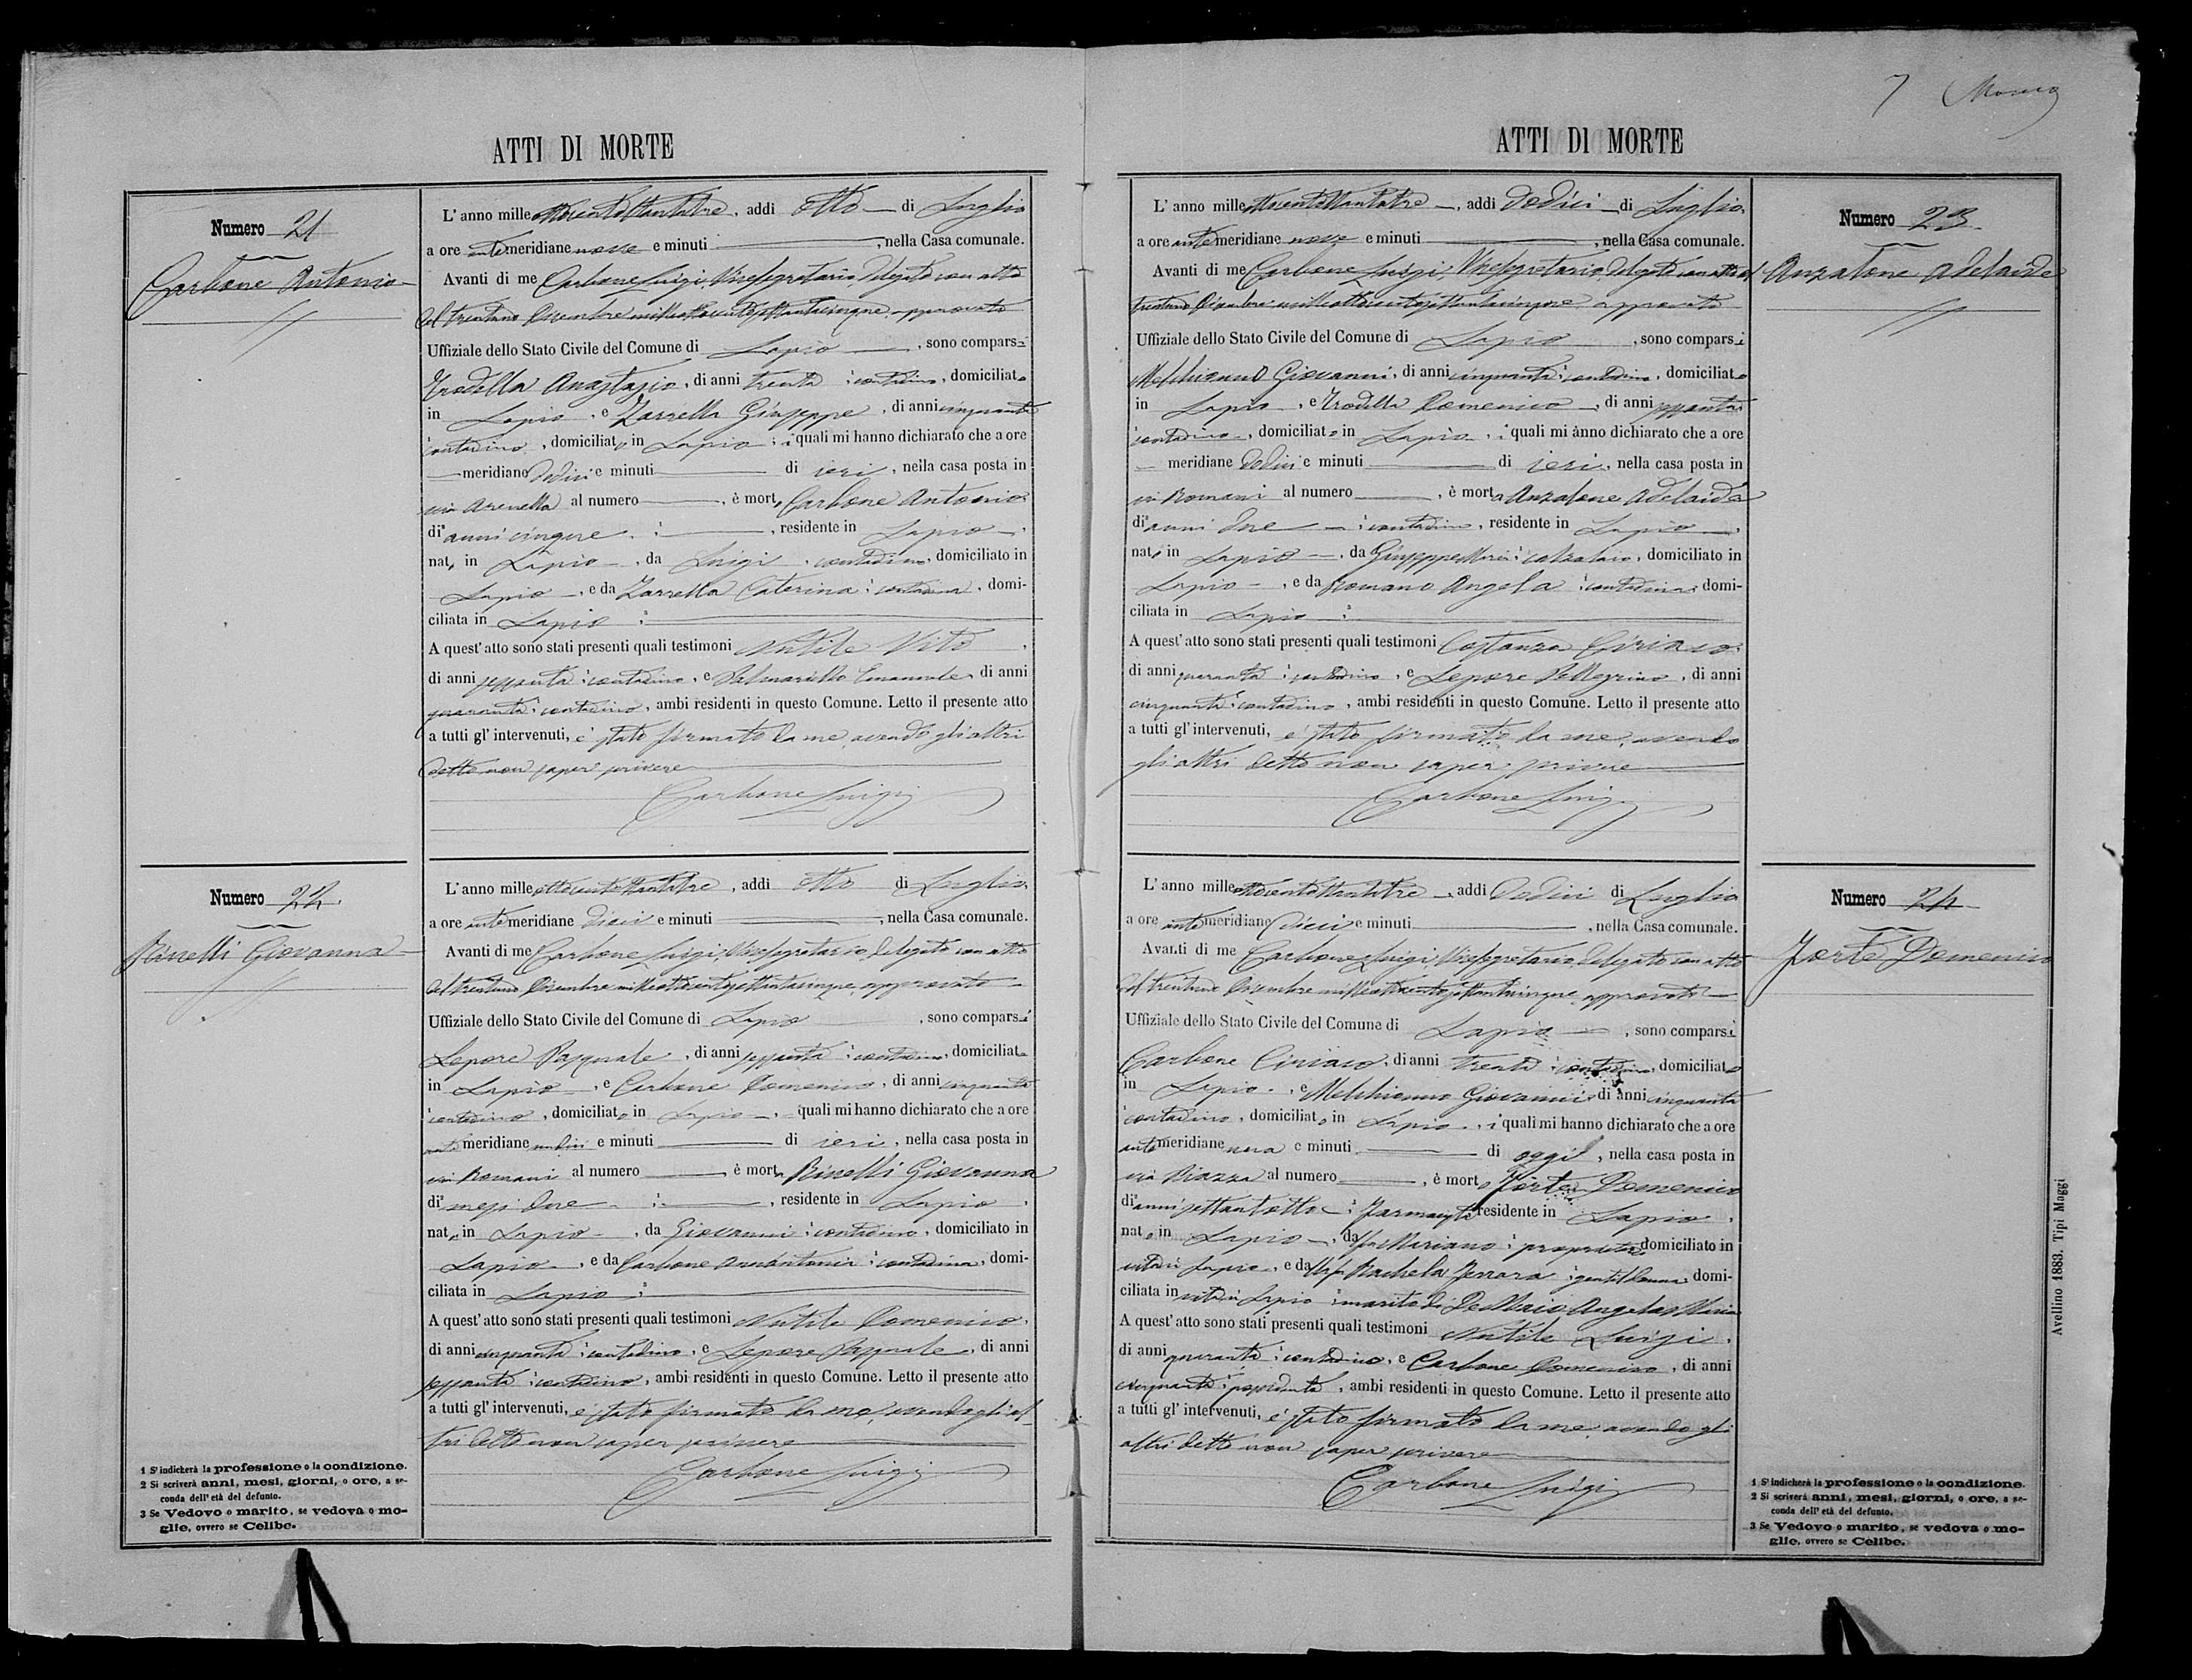 ATTI DI MORTE
Numero 21
Carbone Antonio
L'anno milleottocentottantatre, addi otto di Luglio
a ore antemeridiane nove e minuti , nella Casa comunale.
Avanti di me Carbone Luigi Vicesegretario, delegato con atto
del trentuno Dicembre milleottocentosettantacinque, approvato
Uffiziale dello Stato Civile del Comune di Lapio , sono comparsi
Trodella Anastasio, di anni trenta contadino, domiciliato
in Lapio, e Zarrella Giuseppe, di anni cinquanta
contadino, domiciliato in Lapio; i quali mi hanno dichiarato che a ore
meridiane dodici e minuti di ieri, nella casa posta in
via Arenella al numero , è morto Carbone Antonio
di anni cinque , residente in Lapio,
nato in Lapio, da Luigi, contadino, domiciliato in
Lapio, e da Zarrella Caterina contadina, domi-
ciliata in Lapio
A quest'atto sono stati presenti quali testimoni Nutile Vito,
di anni sessanta contadino, e Palmariello Emanuele di anni
quaranta contadino, ambi residenti in questo Comune. Letto il presente atto
a tutti gl'intervenuti, è stato firmato da me, avendo gli altri
detto non saper scrivere
Carbone Luigi
Numero 22.
Rinelli Giovanna
L'anno milleottocentottantatre, addi otto di Luglio
a ore antemeridiane dieci e minuti , nella Casa comunale.
Avanti di me Carbone Luigi, Vicesegretario, delegato con atto
del trentuno Dicembre milleottocentosettantacinque, approvato
Uffiziale dello Stato Civile del Comune di Lapio , sono comparsi
Lepore Pasquale, di anni sessanta contadino, domiciliato
in Lapio, e Carbone Domenico, di anni cinquanta
contadino, domiciliato in Lapio, quali mi hanno dichiarato che a ore
antemeridiane undici e minuti di ieri, nella casa posta in
via Romani al numero è morta Rinelli Giovanna
di mesi due , residente in Lapio,
nata in Lapio, da Giovanni contadino, domiciliato in
Lapio, e da Carbone Annantonia contadina, domi-
ciliata in Lapio
A quest'atto sono stati presenti quali testimoni Nutile Domenico,
di anni cinquanta contadino, e Lepore Pasquale, di anni
sessanta contadino, ambi residenti in questo Comune. Letto il presente atto
a tutti gl'intervenuti, è stato firmato da me, avendo gli al-
tri detto non saper scrivere
Carbone Luigi
1 S'indicherà la professione o la condizione.
2 Si scriverà anni, mesi, giorni, o ore, a se-
conda dell'età del defunto.
3 Se Vedovo o marito, se vedova o mo-
glie, ovvero se Celibe.
7
ATTI DI MORTE
L'anno milleottocentottantatre, addi dodici di Luglio
a ore antemeridiane nove e minuti , nella Casa comunale.
Avanti di me Carbone Luigi Vicesegretario, delegato con atto del
trentuno Dicembre milleottocentosettantacinque, approvato
Uffiziale dello Stato Civile del Comune di Lapio , sono comparsi
Melchionno Giovanni, di anni cinquanta contadino, domiciliato
in Lapio, e Trodella Domenico, di anni sessanta
contadino, domiciliato in Lapio, i quali mi ànno dichiarato che a ore
meridiane dodici e minuti di ieri, nella casa posta in
via Romani al numero , è morta Anzalone Adelaide
di anni due contadina, residente in Lapio,
nata in Lapio, da Giuseppe Maria calzolaio, domiciliato in
Lapio, e da Romano Angela contadina domi-
ciliata in Lapio
A quest'atto sono stati presenti quali testimoni Costanza Ciriaco
di anni quaranta contadino, e Lepore Pellegrino, di anni
cinquanta contadino, ambi residenti in questo Comune. Letto il presente atto
a tutti gl'intervenuti, è stato firmato da me, avendo
gli altri detto non saper scrivere
Carbone Luigi
Numero 23.
Anzalone Adelaide
L'anno milleottocentottantatre, addi dodici di Luglio
a ore antemeridiane dieci e minuti , nella Casa comunale.
Avanti di me Carbone Luigi Vicesegretario, delegato con atto
del trentuno Dicembre milleottocentosettantacinque, approvato
Uffiziale dello Stato Civile del Comune di Lapio , sono comparsi
Carbone Ciriaco, di anni trenta contadino, domiciliato
in Lapio, e Melchionno Giovanni di anni cinquanta
contadino, domiciliato in Lapio, i quali mi hanno dichiarato che a ore
antemeridiane nove e minuti di oggi, nella casa posta in
via Piazza al numero , è morto Forte Domenico
di anni settantotto Farmacista residente in Lapio,
nato in Lapio, da fu Mariano proprietario domiciliato in
vita in Lapio, e da fu Rachela Ferrara gentildonna, domi-
ciliata in vita in Lapio marito di De Maio Angela Maria
A quest'atto sono stati presenti quali testimoni Nutile Luigi,
di anni quaranta contadino, e Carbone Domenico, di anni
cinquanta , ambi residenti in questo Comune. Letto il presente atto
a tutti gl'intervenuti, è stato firmato da me, avendo gli
altri detto non saper scrivere
Carbone Luigi
Numero 24
Forte Domenico
1 S'indicherà la professione o la condizione.
2 Si scriverà anni, mesi, giorni, o ore, a se-
conda dell'età del defunto.
3 Se Vedovo o marito, se vedova o mo-
glie, ovvero se Celibe.
Avellino 1883. Tipi Maggi